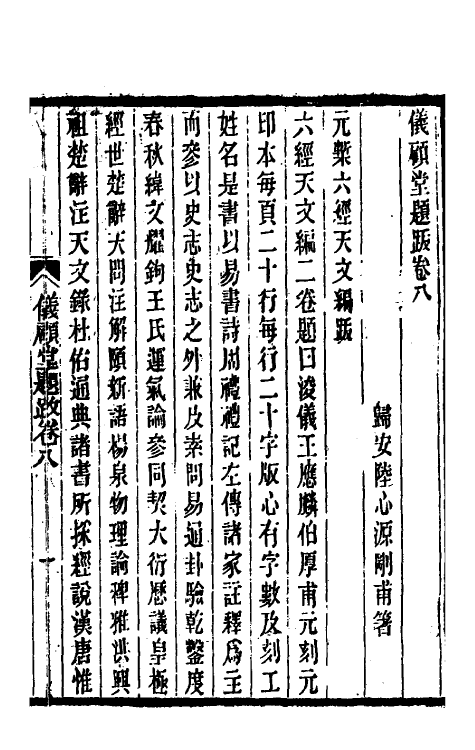 儀顧堂題跋卷八
歸安陸心源剛甫箸
元槧六經天文編跋
六經天文編二卷題曰浚儀王應麟伯厚甫元刻元
印本每頁二十行每行二十字版心有字數及刻工
姓名是書以易書詩周禮禮記左傳諸家註釋爲主
而參以史志史志之外兼及素問易通卦驗乾鑿度
春秋緯文燿鉤王氏運氣論參同契大衍厯議皇極
經世楚辭天問注解頤新語楊泉物理論稗雅洪興
祖楚辭注天文錄杜佑通典諸書所採經說漢唐惟
儀顧堂題跋卷八
一